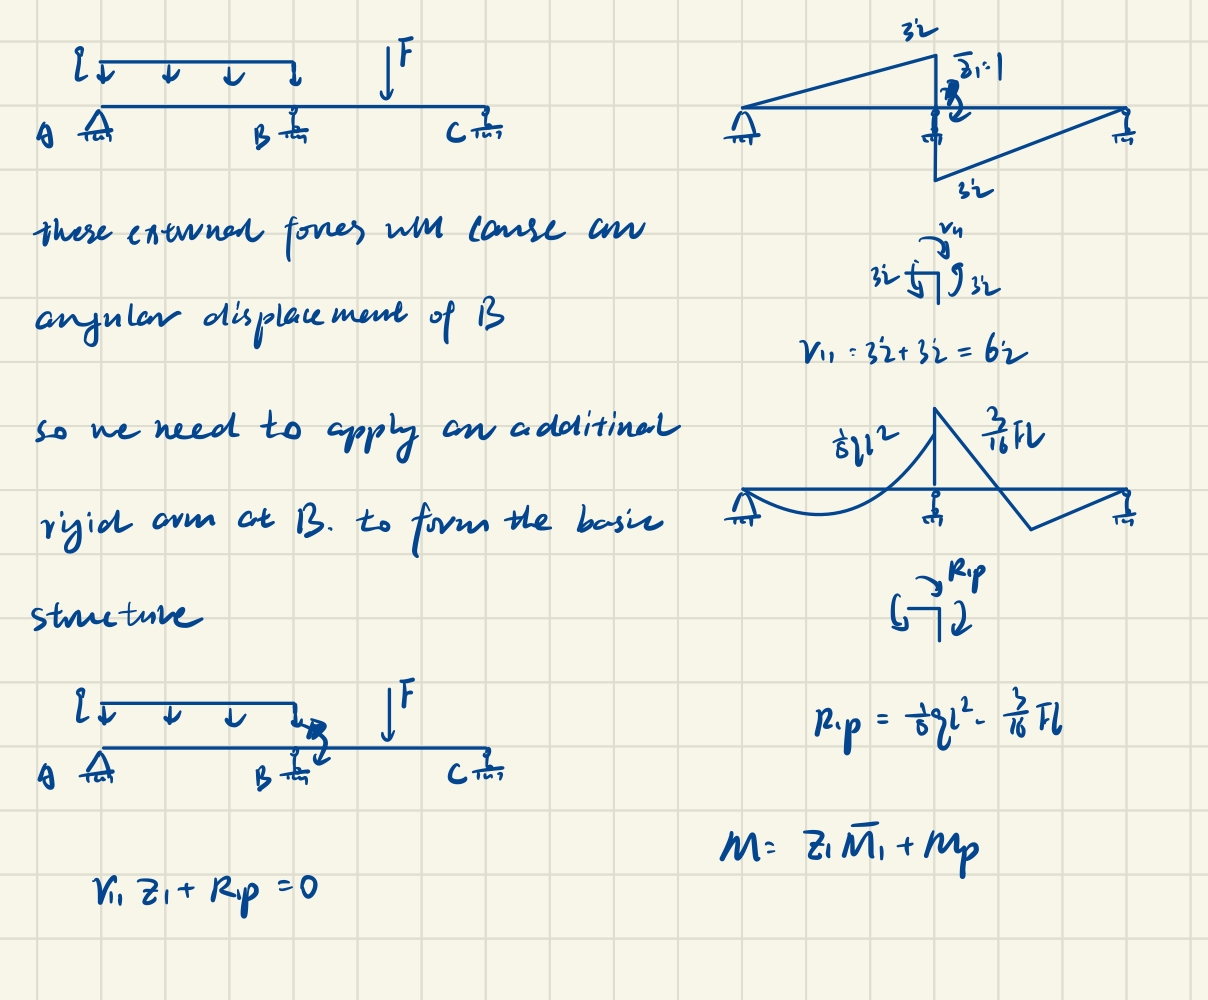 q
F
A
B
C
these external forces will cause an
angular displacement of B
so we need to apply an additinal
rigid arm at B. to form the basic
structure
q
F
A
B
C
r₁₁ z₁ + R₁p = 0
3i
z̄₁=1
3i
r₁₁
3i
3i
r₁₁ = 3i + 3i = 6i
1/8 ql²
3/16 Fl
R₁p
R₁p = 1/8 ql² - 3/16 Fl
M = z₁ M̄₁ + Mp